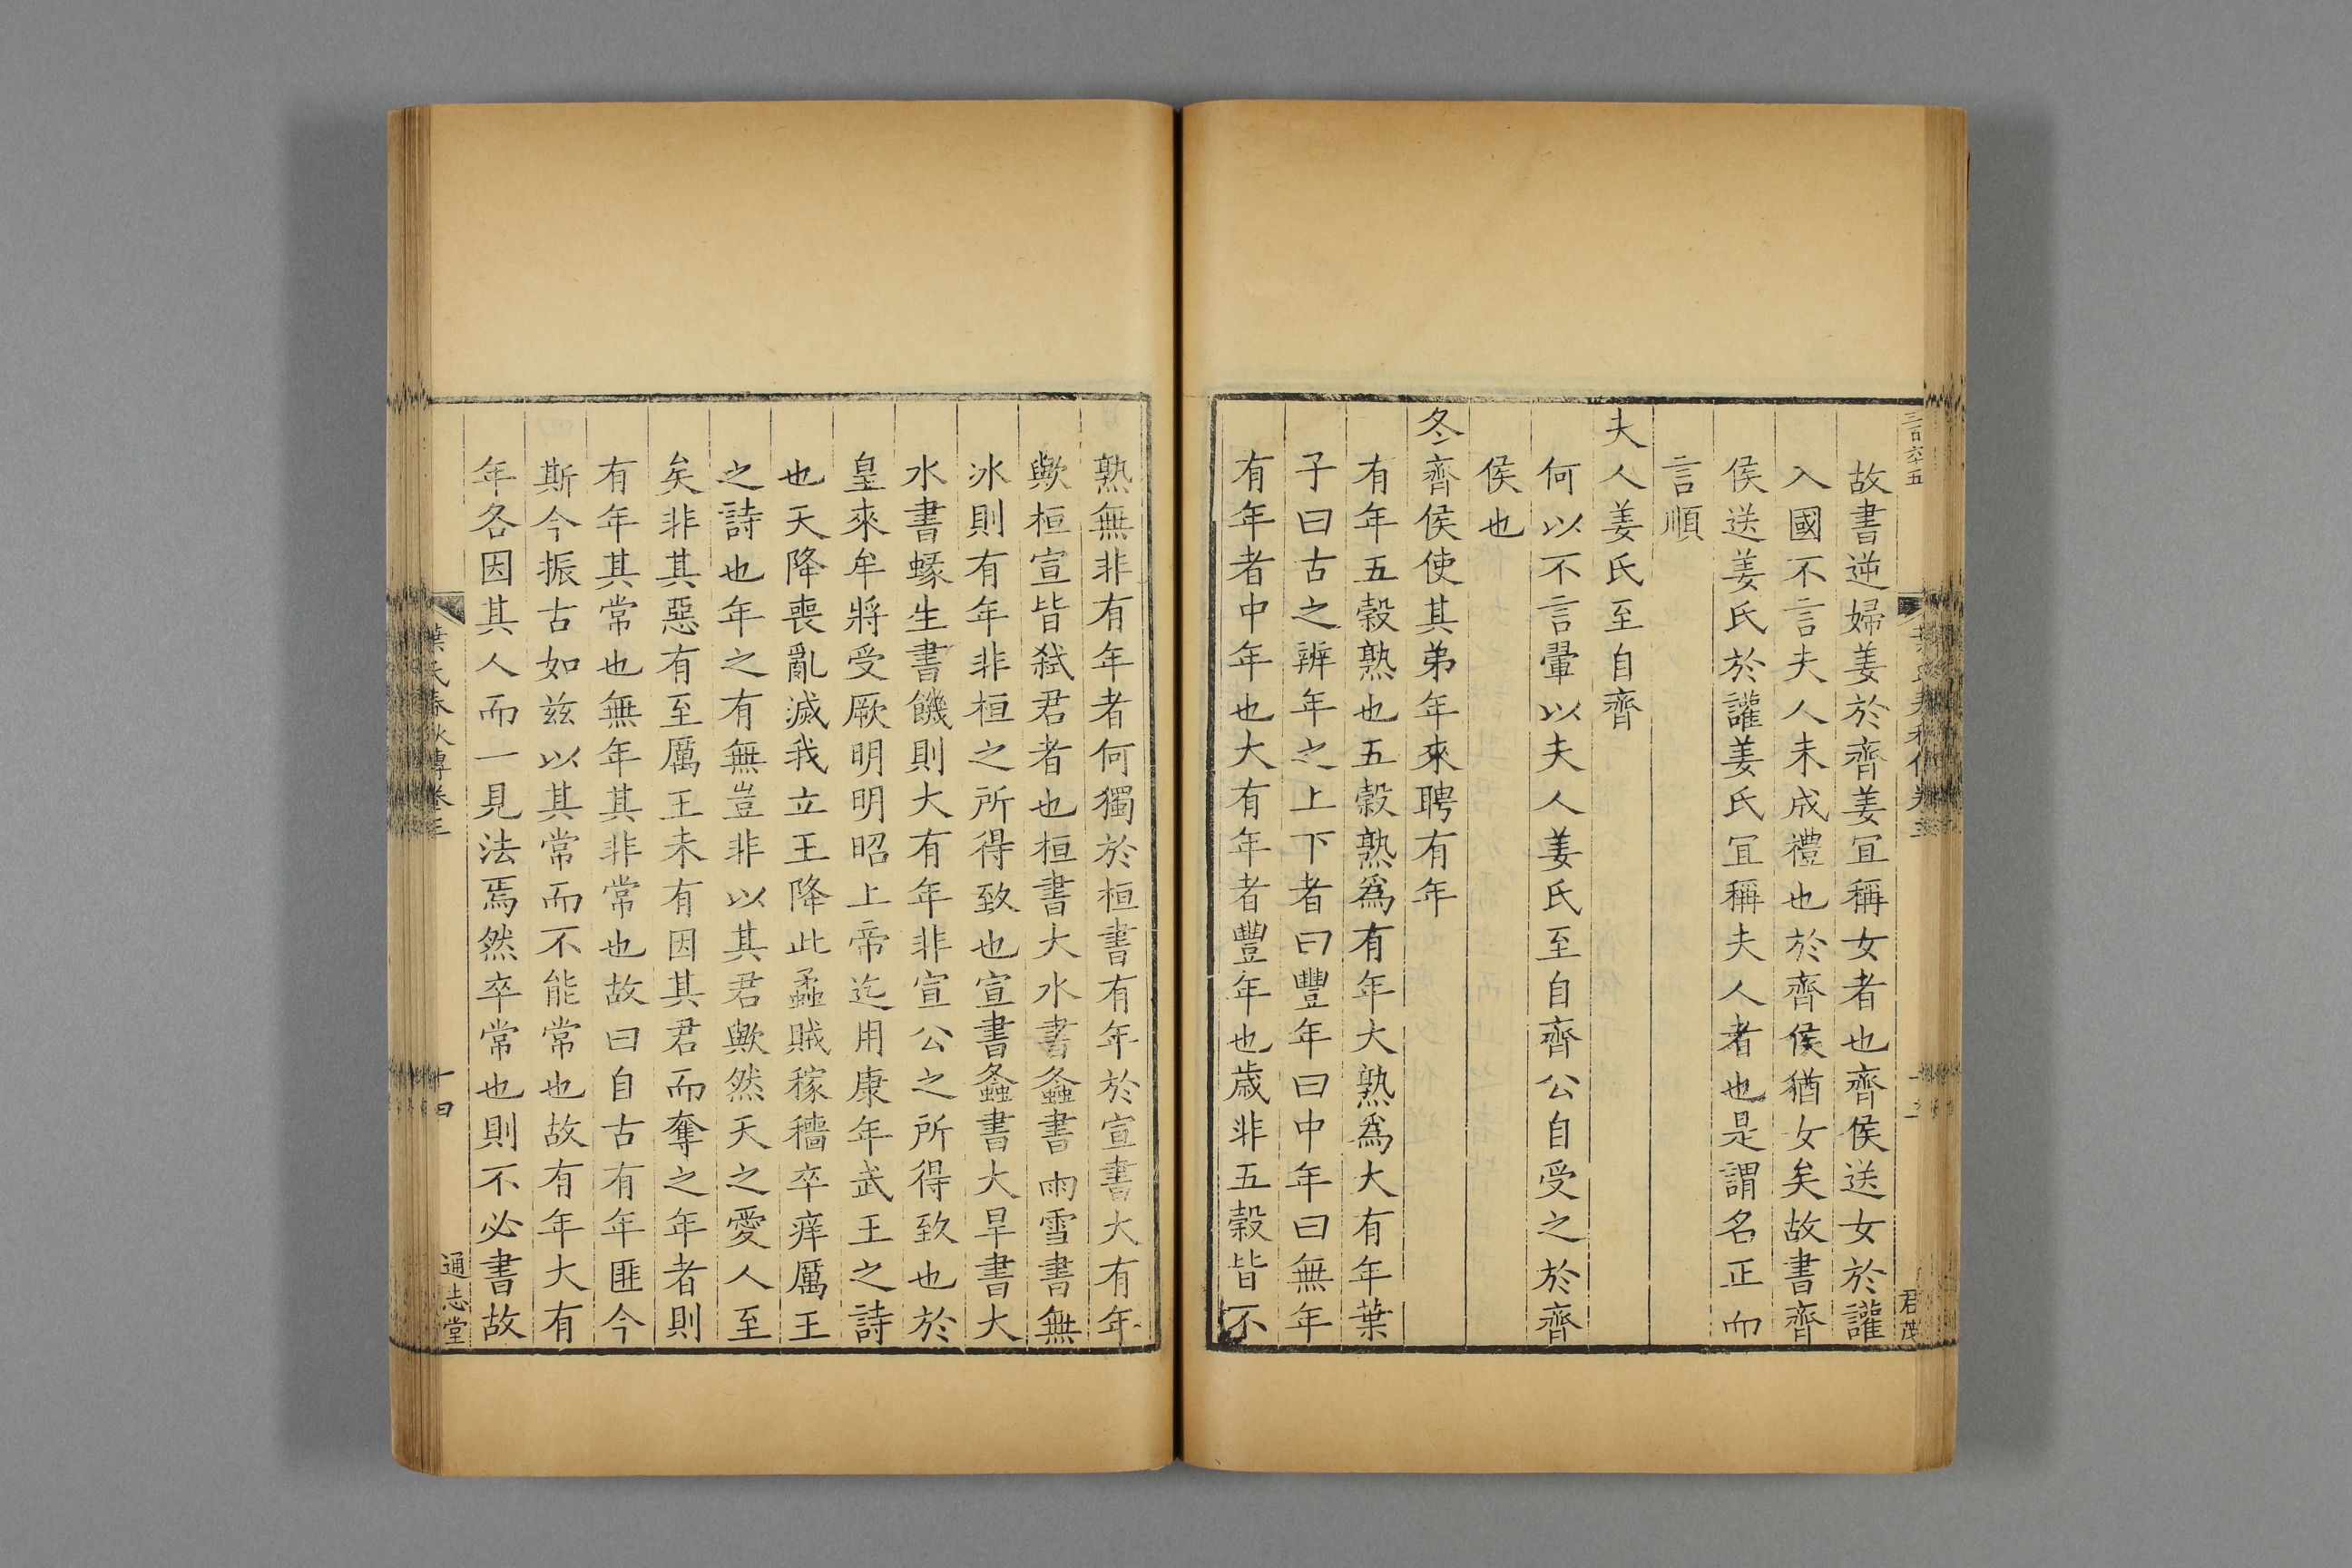 三百六十五
故書逆婦姜於齊姜宜稱女者也齊侯送女於讙
入國不言夫人未成禮也於齊侯猶女矣故書齊
侯送姜氏於讙姜氏宜稱夫人者也是謂名正而
言順
夫人姜氏至自齊
何以不言翬以夫人姜氏至自齊公自受之於齊
侯也
冬齊侯使其弟年來聘有年
有年五穀熟也五穀熟爲有年大熟爲大有年葉
子曰古之辨年之上下者曰豐年曰中年曰無年
有年者中年也大有年者豐年也歲非五穀皆不
君茂
熟無非有年者何獨於桓書有年於宣書大有年
歟桓宣皆弑君者也桓書大水書螽書雨雪書無
冰則有年非桓之所得致也宣書螽書大旱書大
水書蝝生書饑則大有年非宣公之所得致也於
皇來牟將受厥明明昭上帝迄用康年武王之詩
也天降喪亂滅我立王降此蟊賊稼穡卒痒厲王
之詩也年之有無豈非以其君歟然天之愛人至
矣非其惡有至厲王未有因其君而奪之年者則
有年其常也無年其非常也故曰自古有年匪今
斯今振古如兹以其常而不能常也故有年大有
年各因其人而一見法焉然卒常也則不必書故
葉氏春秋傳卷三
十四
通志堂